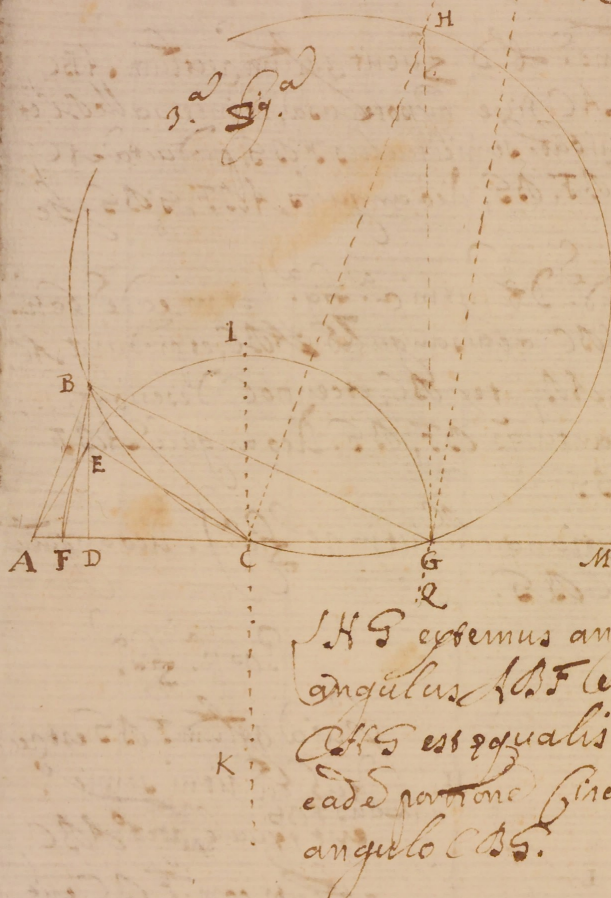 H
3.ª Fig.ª
I
B
E
A F D C G M
Q
K
HG extremus an
angulus ABF
CHG est equalis
eadē portione Circ
angulo CBG.